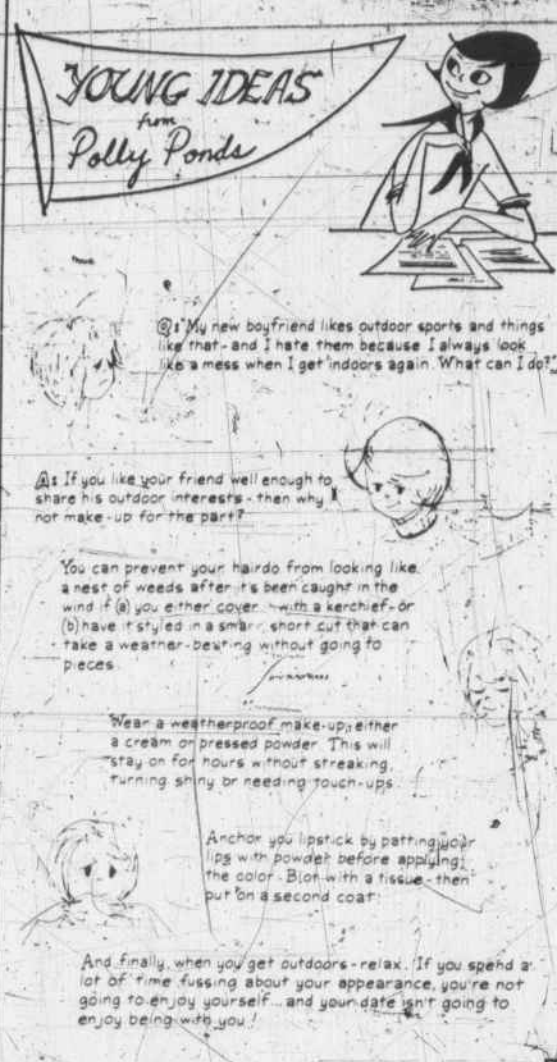 YOUNG IDEAS
from
Polly Ponds
Q: "My new boyfriend likes outdoor sports and things
like that - and I hate them because I always look
like a mess when I get indoors again. What can I do?"
A: If you like your friend well enough to
share his outdoor interests - then why
not make-up for the part?
You can prevent your hairdo from looking like
a nest of weeds after it's been caught in the
wind if (a) you either cover with a kerchief - or
(b) have it styled in a smart, short cut that can
take a weather-beating without going to
pieces.
Wear a weatherproof make-up, either
a cream or pressed powder. This will
stay on for hours without streaking,
turning shiny or needing touch-ups.
Anchor you lipstick by patting your
lips with powder before applying
the color. Blot with a tissue - then
put on a second coat.
And finally, when you get outdoors - relax. If you spend a
lot of time fussing about your appearance, you're not
going to enjoy yourself... and your date isn't going to
enjoy being with you!